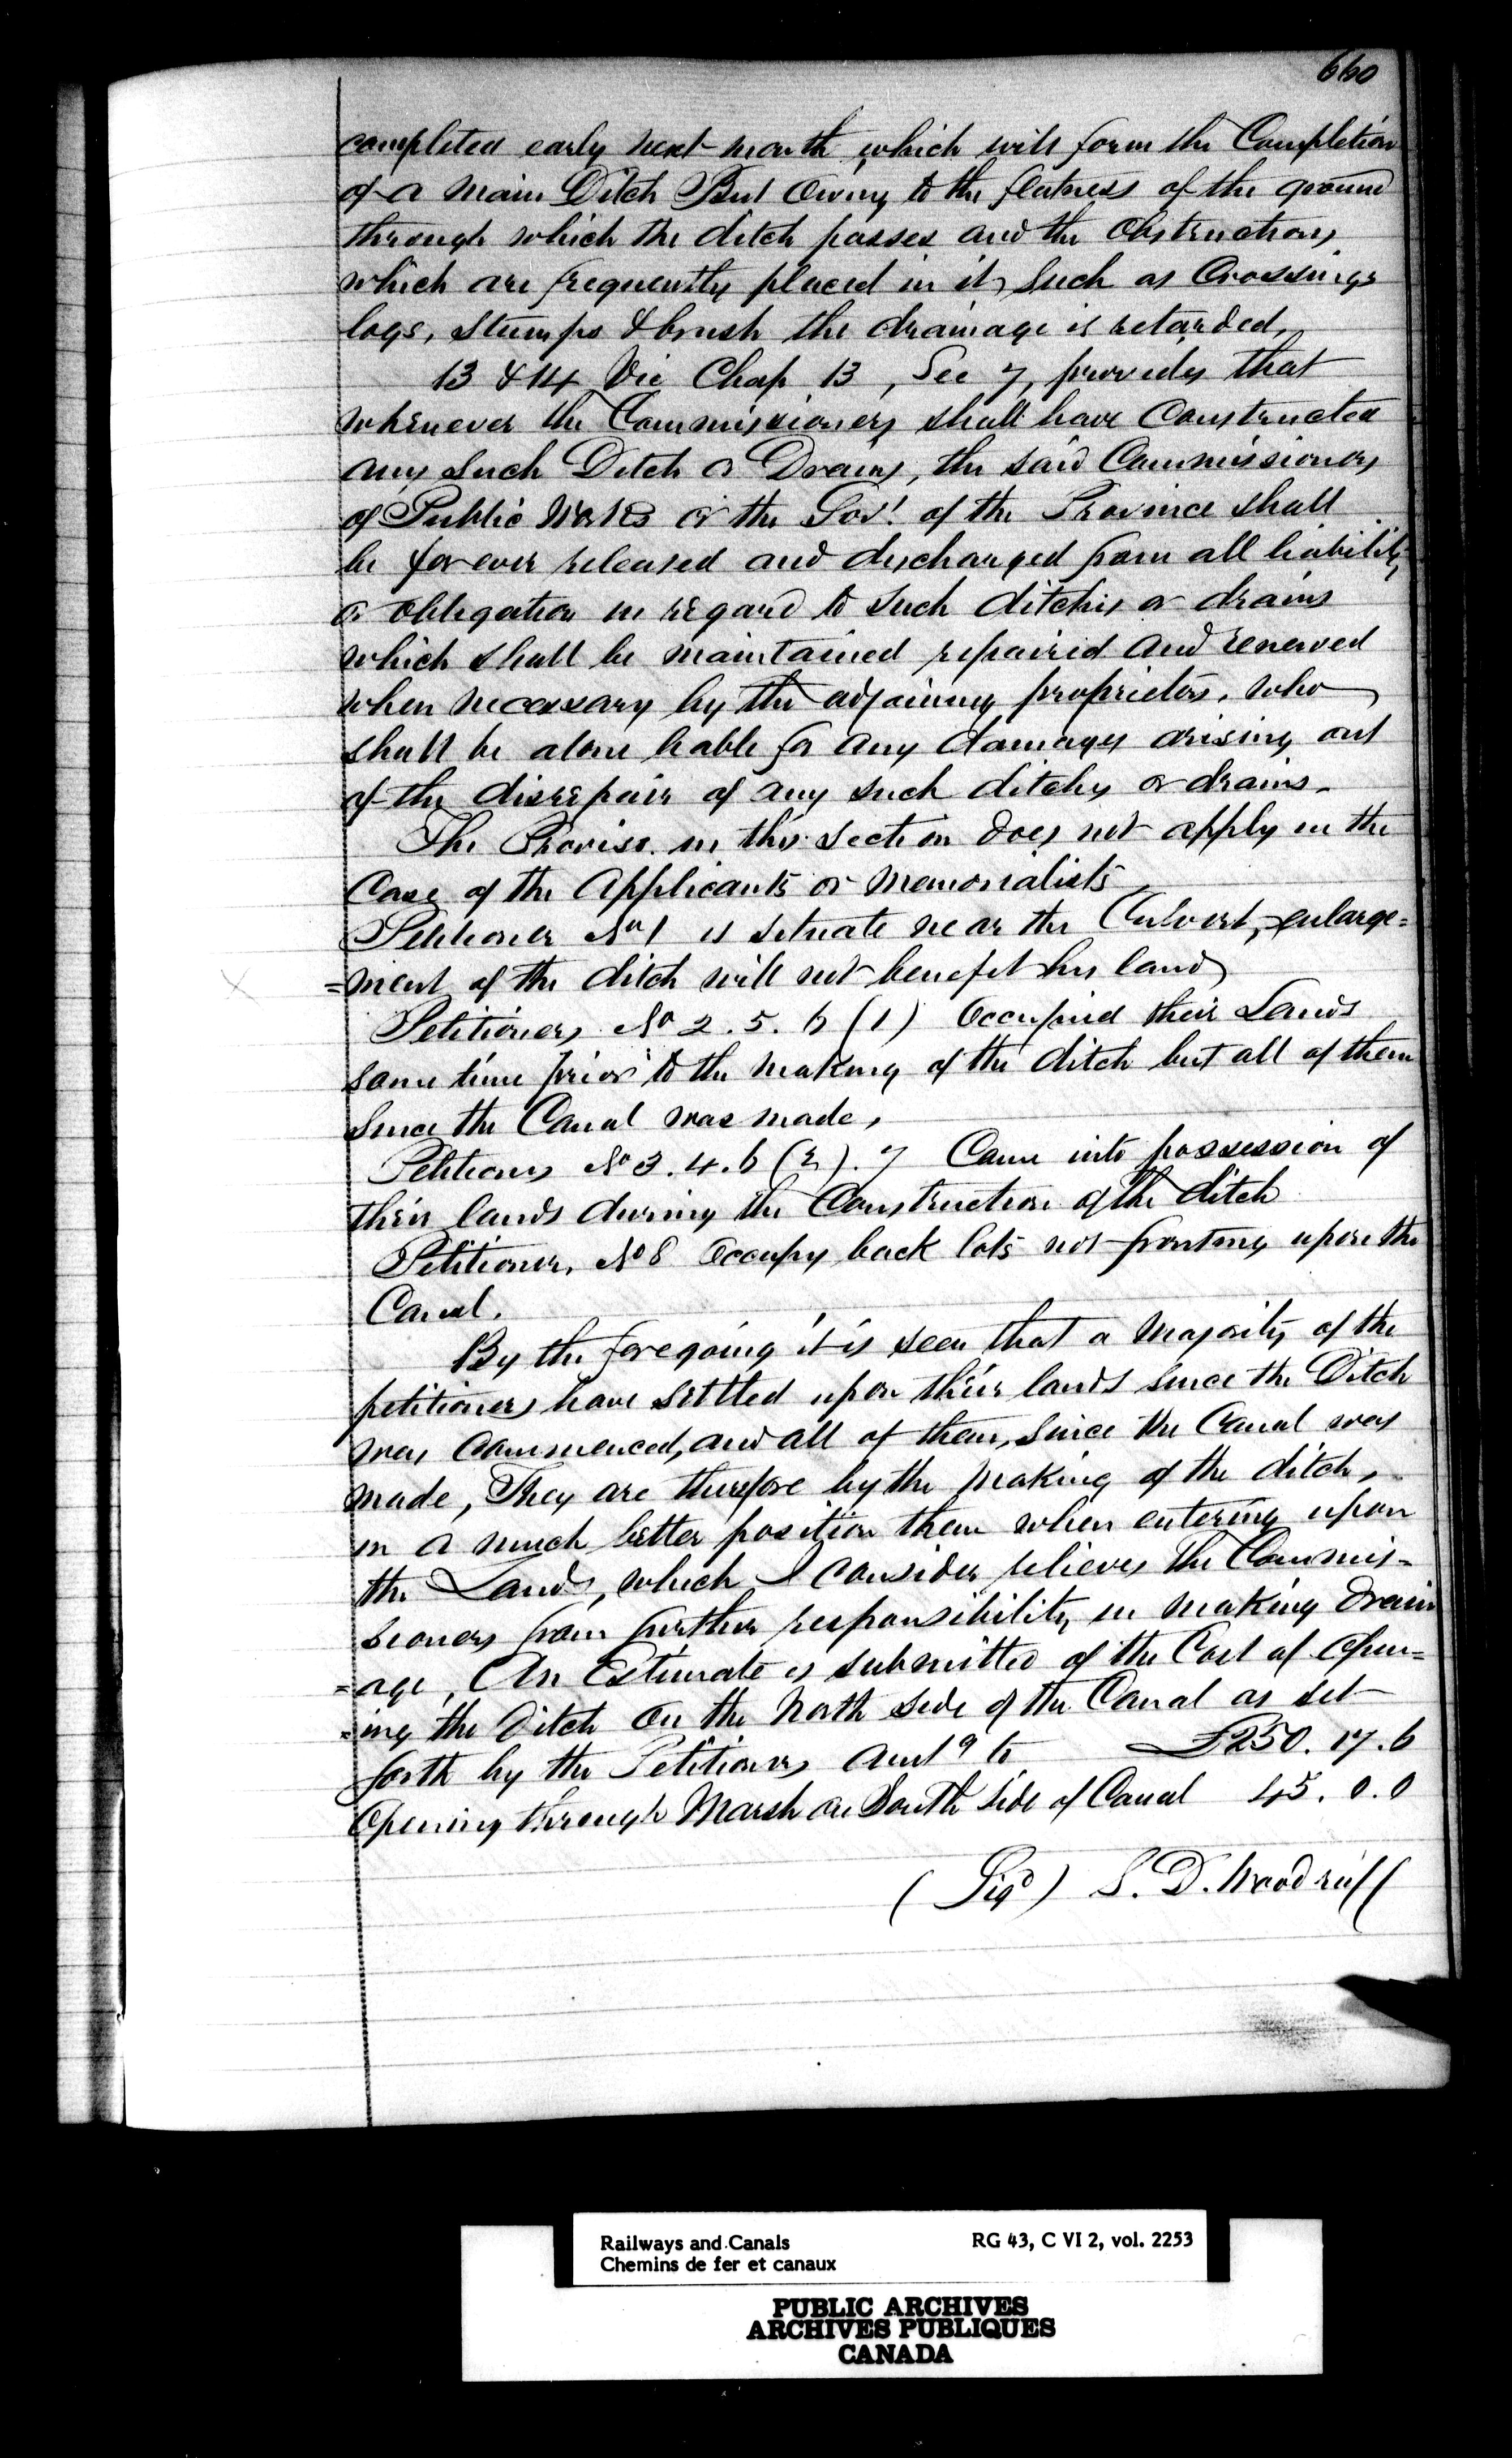 660
completed early next month which will form the Completion
of a main Ditch But Owing to the flatness of the ground
through which the ditch passes and the Obstructions
which are frequently placed in it, Such as Crossings
logs, stumps & brush the drainage is retarded,
13 & 14 Vic Chap 13, Sec 7, provides that
whenever the Commissioners shall have Constructed
any Such Ditch or Drains, the said Commissioners
of Public Works or the Gov! of the Province shall
be for ever released and discharged from all liability
or obligation in regard to such ditches or drains
which shall be maintained repairid and renewed
when necessary by the adjoining proprietors, who
shall be alone liable for any damages arising out
of the disrepair of any such ditches or drains.
The Proviso in this Section does not apply in the
Case of the Applicants or Memorialists
Petitioner No 1 is situate near the Culvert, enlarge=
=ment of the ditch will not benefit his land
Petitioners No 2. 5. 6 (1) Occupied their Lands
some time prior to the making of the ditch but all of them
Since the Canal was made,
Petitions No 3. 4. 6 (2). 7 Came into possession of
their lands during the Construction of the ditch
Petitioner, No 8 Occupy back lots not fronting upon the
Canal.
By the foregoing it is seen that a Majority of the
petitioners have settled upon their lands since the Ditch
was Commenced, and all of them, Since the Canal was
made, They are therefore by the making of the ditch,
in a much better position than when entering upon
the Lands, which I consider relieves the Commis-
sioners from further responsibility in making Drain
=age, An Estimate is submitted of the Cost of Open=
=ing the Ditch On the North Side of the Canal as set
forth by the Petitioners amt g to £250. 17. 6
Opening through Marsh on South Side of Canal 45. 0. 0
(Sigd) S. D. Woodruff
Railways and Canals RG 43, C VI 2, vol. 2253
Chemins de fer et canaux
PUBLIC ARCHIVES
ARCHIVES PUBLIQUES
CANADA